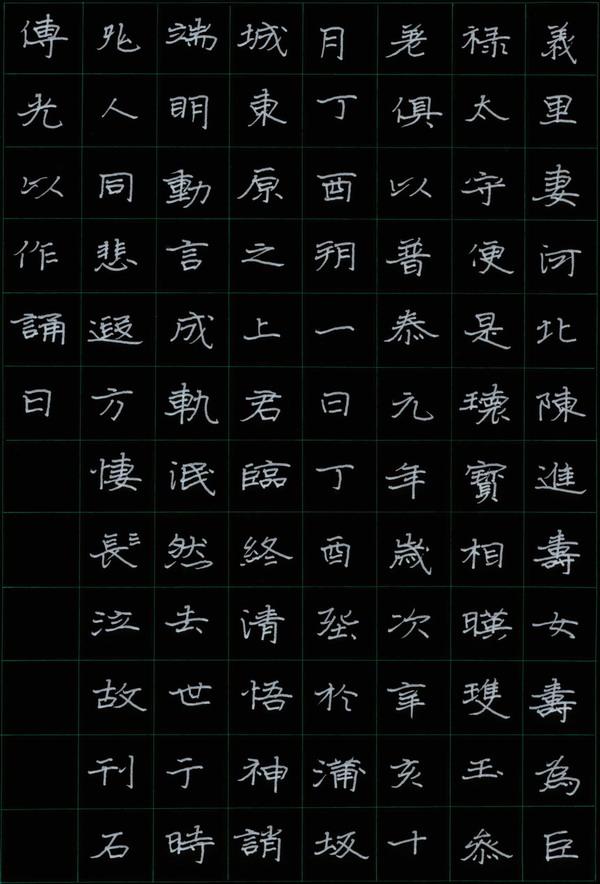 義里妻河北陳進壽女壽為巨
禄太守便是瓌寶相暎瓊玉參
差俱以普泰元年歲次辛亥十
月丁酉朔一日丁酉塟於蒲坂
城東原之上君臨終清悟神誚
端明動言成軌泯然去世于時
兆人同悲遐方悽髟泣故刊石
傳光以作誦曰